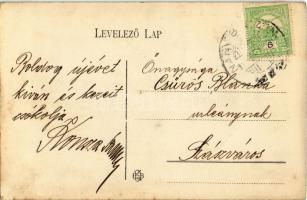 LEVELEZŐ LAP
Boldog újévet
kíván és kezeit
csókolja
Őnagysága
Csűrös Blanka
urleánynak
Szászváros